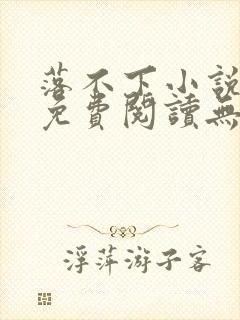 落不下小説
免費閱讀無
浮萍游子客